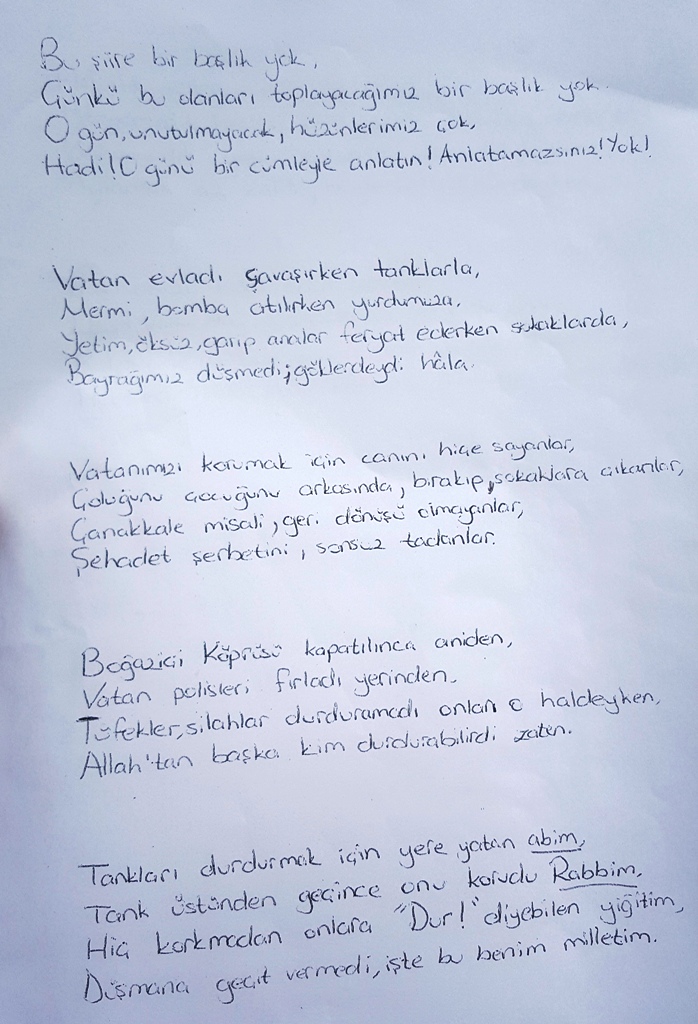 Bu şiire bir başlık yok,
Çünkü bu olanları toplayacağımız bir başlık yok.
O gün, unutulmayacak, hüzünlerimiz çok,
Hadi! O günü bir cümleyle anlatın! Anlatamazsınız! Yok!
Vatan evladı savaşırken tanklarla,
Mermi, bomba atılırken yurdumuza,
Yetim, öksüz, garip analar feryat ederken sokaklarda,
Bayrağımız düşmedi; göklerdeydi hâla.
Vatanımızı korumak için canını hiçe sayanlar,
Çoluğunu çocuğunu arkasında, bırakıp, sokaklara çıkanlar,
Çanakkale misali, geri dönüşü olmayanlar,
Şehadet şerbetini, sonsuz tadanlar.
Boğaziçi Köprüsü kapatılınca aniden,
Vatan polisleri fırladı yerinden.
Tüfekler, silahlar durduramadı onları o haldeyken,
Allah'tan başka kim durdurabilirdi zaten.
Tankları durdurmak için yere yatan abim,
Tank üstünden geçince onu korudu Rabbim,
Hiç korkmadan onlara "Dur!" diyebilen yiğitim,
Düşmana geçit vermedi, işte bu benim milletim.